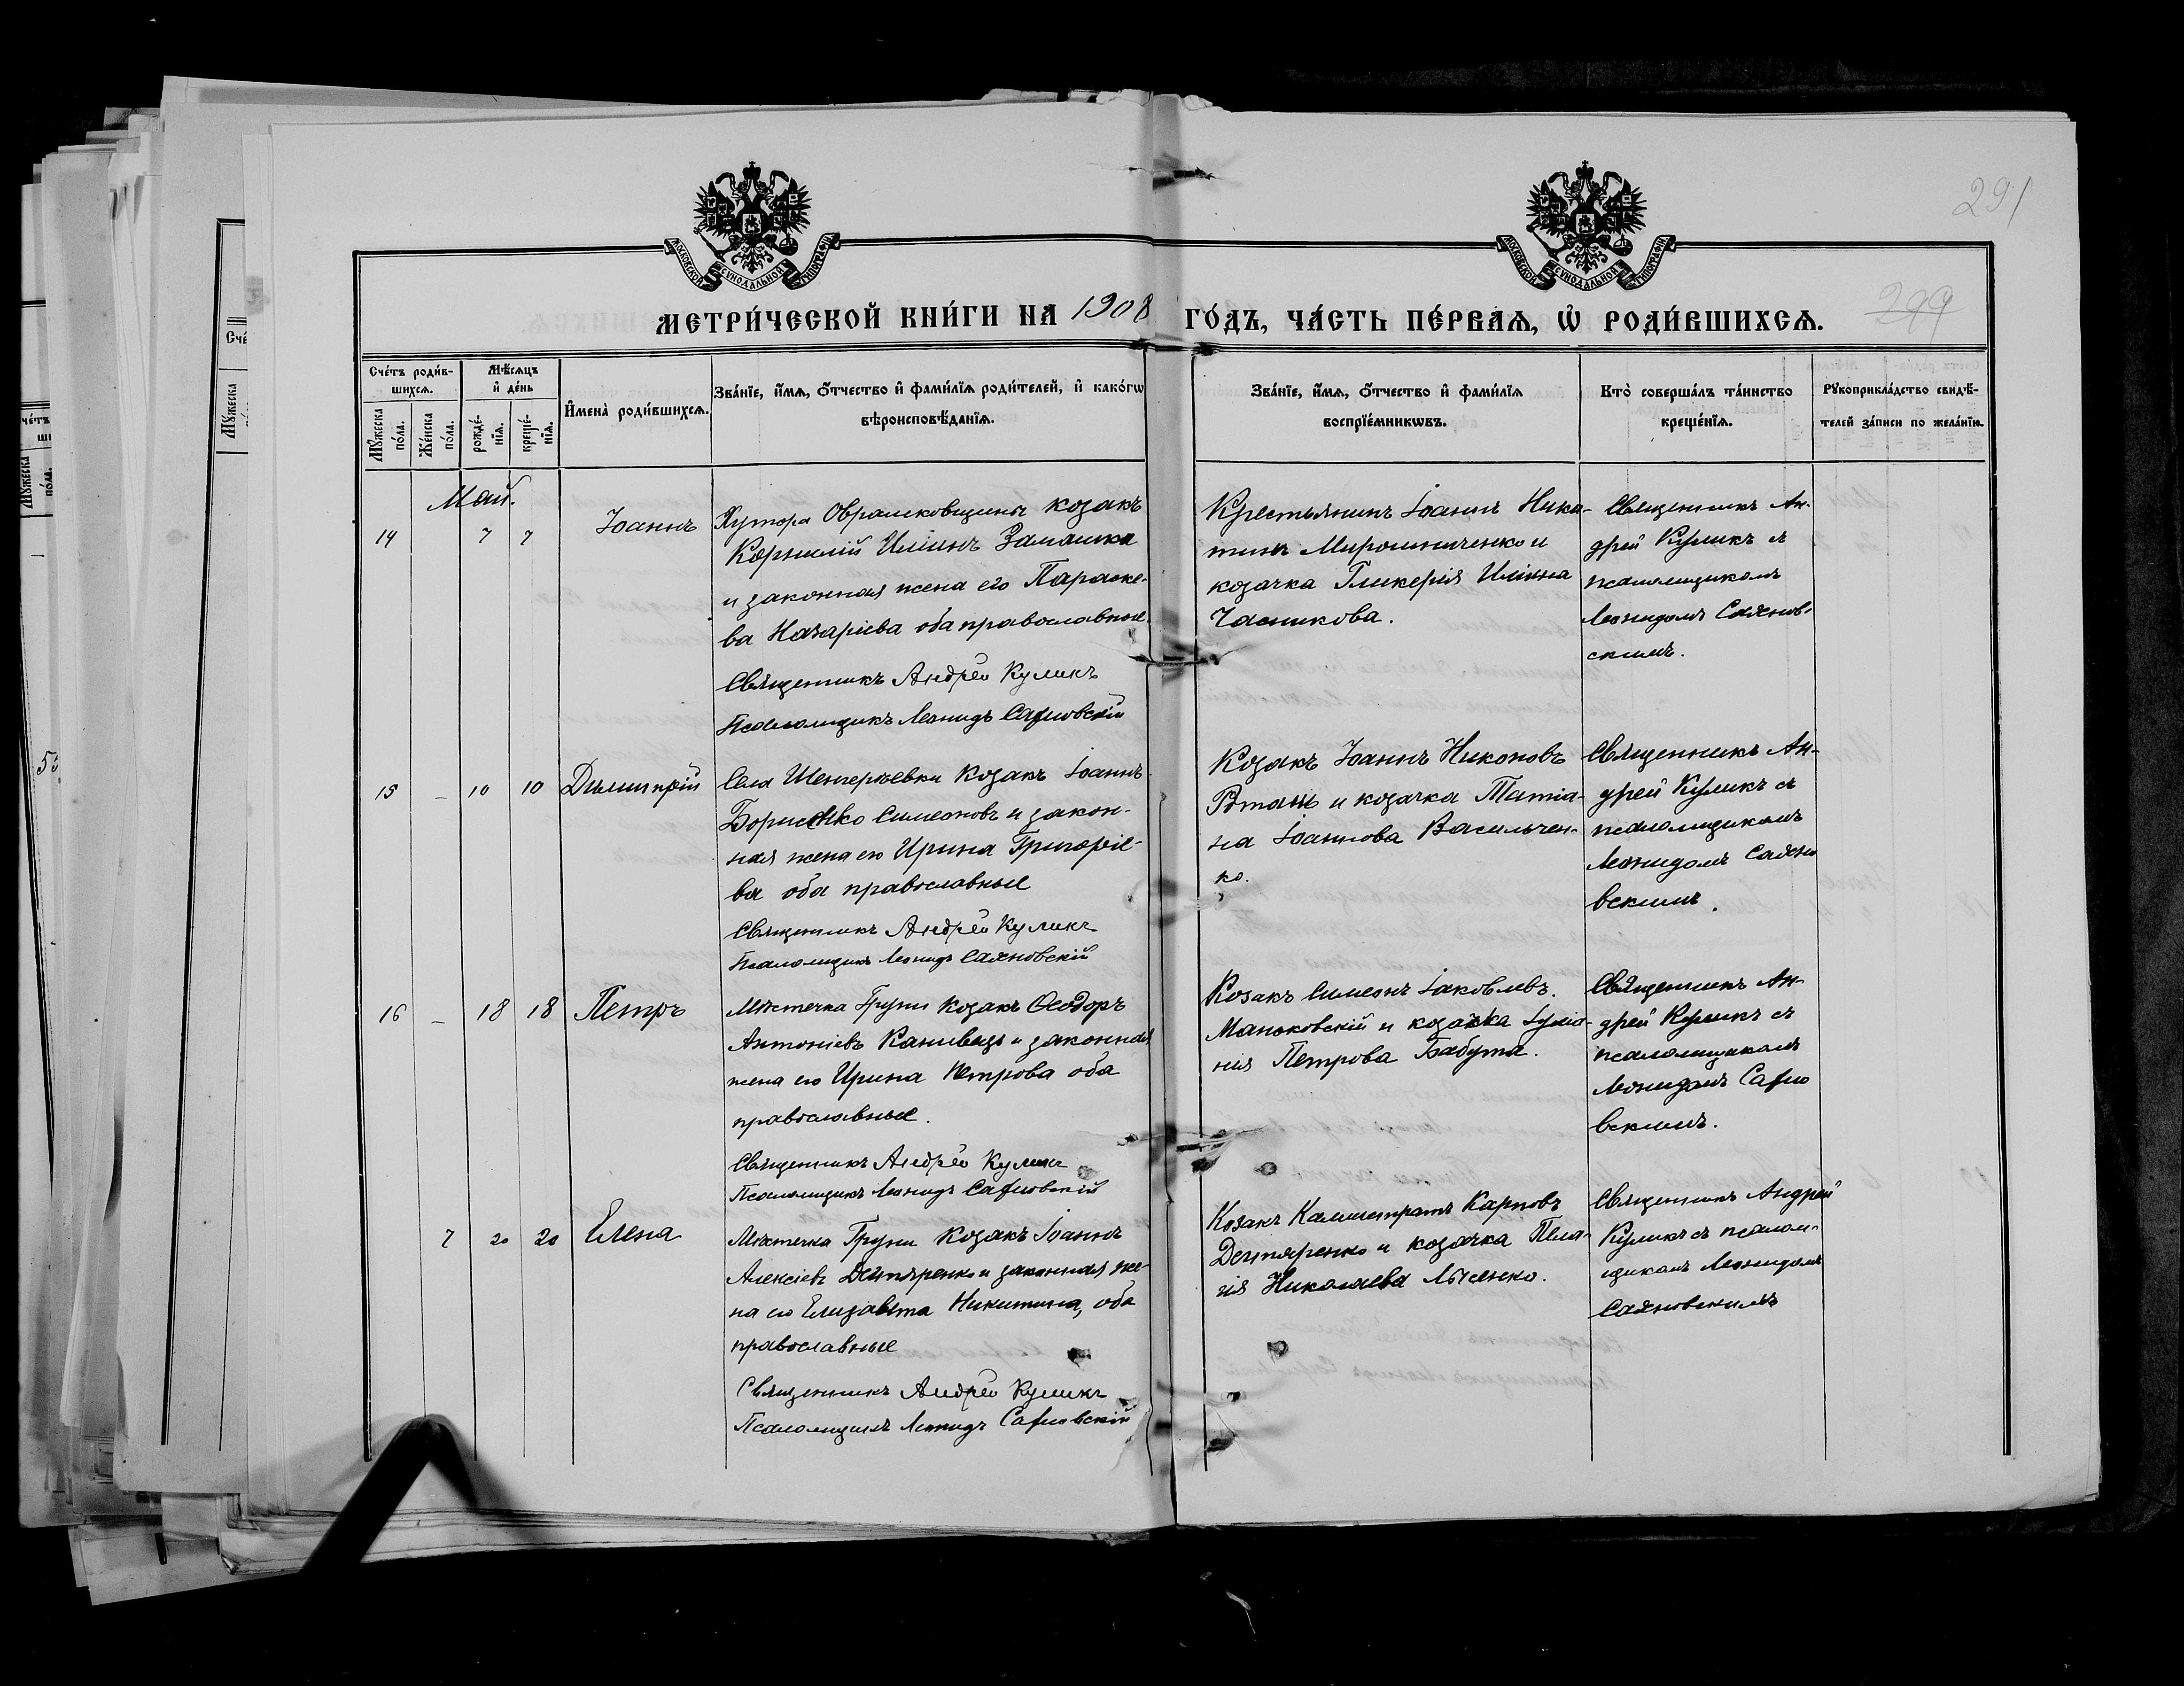 291
299
МОСКОВСКОЙ СѴНОДАЛЬНОЙ ТИПОГРАФІИ
МОСКОВСКОЙ СѴНОДАЛЬНОЙ ТИПОГРАФІИ
МЕТРИ́ЧЕСКОЙ КНИ́ГИ НА 1908 ГО́ДЪ, ЧА́СТЬ ПЕ́РВАѦ, Ѡ҆ РОДИ́ВШИХСѦ.
Сче́тъ роди́в-
шихсѧ.
Мꙋ́жеска
по́ла.
Же́нска
по́ла.
Мѣ́сѧцъ
и҆ де́нь
рожде́-
нїѧ.
креще́-
нїѧ.
И҆мена̀ роди́вшихсѧ.
Зва́нїе, и҆́мѧ, ѻ҆́тчество и҆ фами́лїѧ роди́телей, и҆ како́гѡ
вѣроисповѣ́данїѧ.
Зва́нїе, и҆́мѧ, ѻ҆́тчество и҆ фами́лїѧ
воспрїе́мникѡвъ.
Кто̀ соверша́лъ та́инство
креще́нїѧ.
Рꙋкоприкла́дство свидѣ́-
телей за́писи по жела́нїю.
Май.
14 7 7 Іоаннъ
Хутора Оврамковщины козакъ
Корнилій Иліинъ Замашка
и законная жена его Параске-
ва Назаріева оба православные.
Священникъ Андрей Куликъ
Псаломщикъ Леонидъ Саяновскій
Крестьянинъ Іоаннъ Ники-
тинъ Мирошниченко и
козачка Гликерія Иліина
Часникова.
Священникъ Ан-
дрей Куликъ съ
псаломщикомъ
Леонидомъ Саянов-
скимъ.
15 – 10 10 Димитрій
Села Шенгерѣевки козакъ Іоаннъ
Борисенко Симеоновъ и закон-
ная жена его Ирина Григоріе-
ва оба православные
Священникъ Андрей Куликъ
Псаломщикъ Леонидъ Саяновскій
Козакъ Іоаннъ Никоновъ
Ротань и козачка Татіа-
на Іоаннова Васильчен-
ко.
Священникъ Ан-
дрей Куликъ съ
псаломщикомъ
Леонидомъ Саяно
вскимъ.
16 – 18 18 Петръ
Мѣстечка Груни козакъ Ѳеодоръ
Антоніевъ Канивецъ и законная
жена его Ирина Петрова оба
православные.
Священникъ Андрей Куликъ
Псаломщикъ Леонидъ Саяновскій
Козакъ Симеонъ Іаковлевъ
Маньковскій и козачка Іуліа-
нія Петрова Бабута.
Священникъ Ан-
дрей Куликъ съ
псаломщикомъ
Леонидомъ Саяно
вскимъ.
7 20 20 Елена
Мѣстечка Груни козакъ Іоаннъ
Алексіевъ Дегтяренко и законная же-
на его Елизавета Никитина, оба
православные
Священникъ Андрей Куликъ
Псаломщикъ Леонидъ Саяновскій
Козакъ Каллистратъ Карповъ
Дегтяренко и козачка Пела-
гія Николаева Лысенко.
Священникъ Андрей
Куликъ съ псалом-
щикомъ Леонидомъ
Саяновскимъ